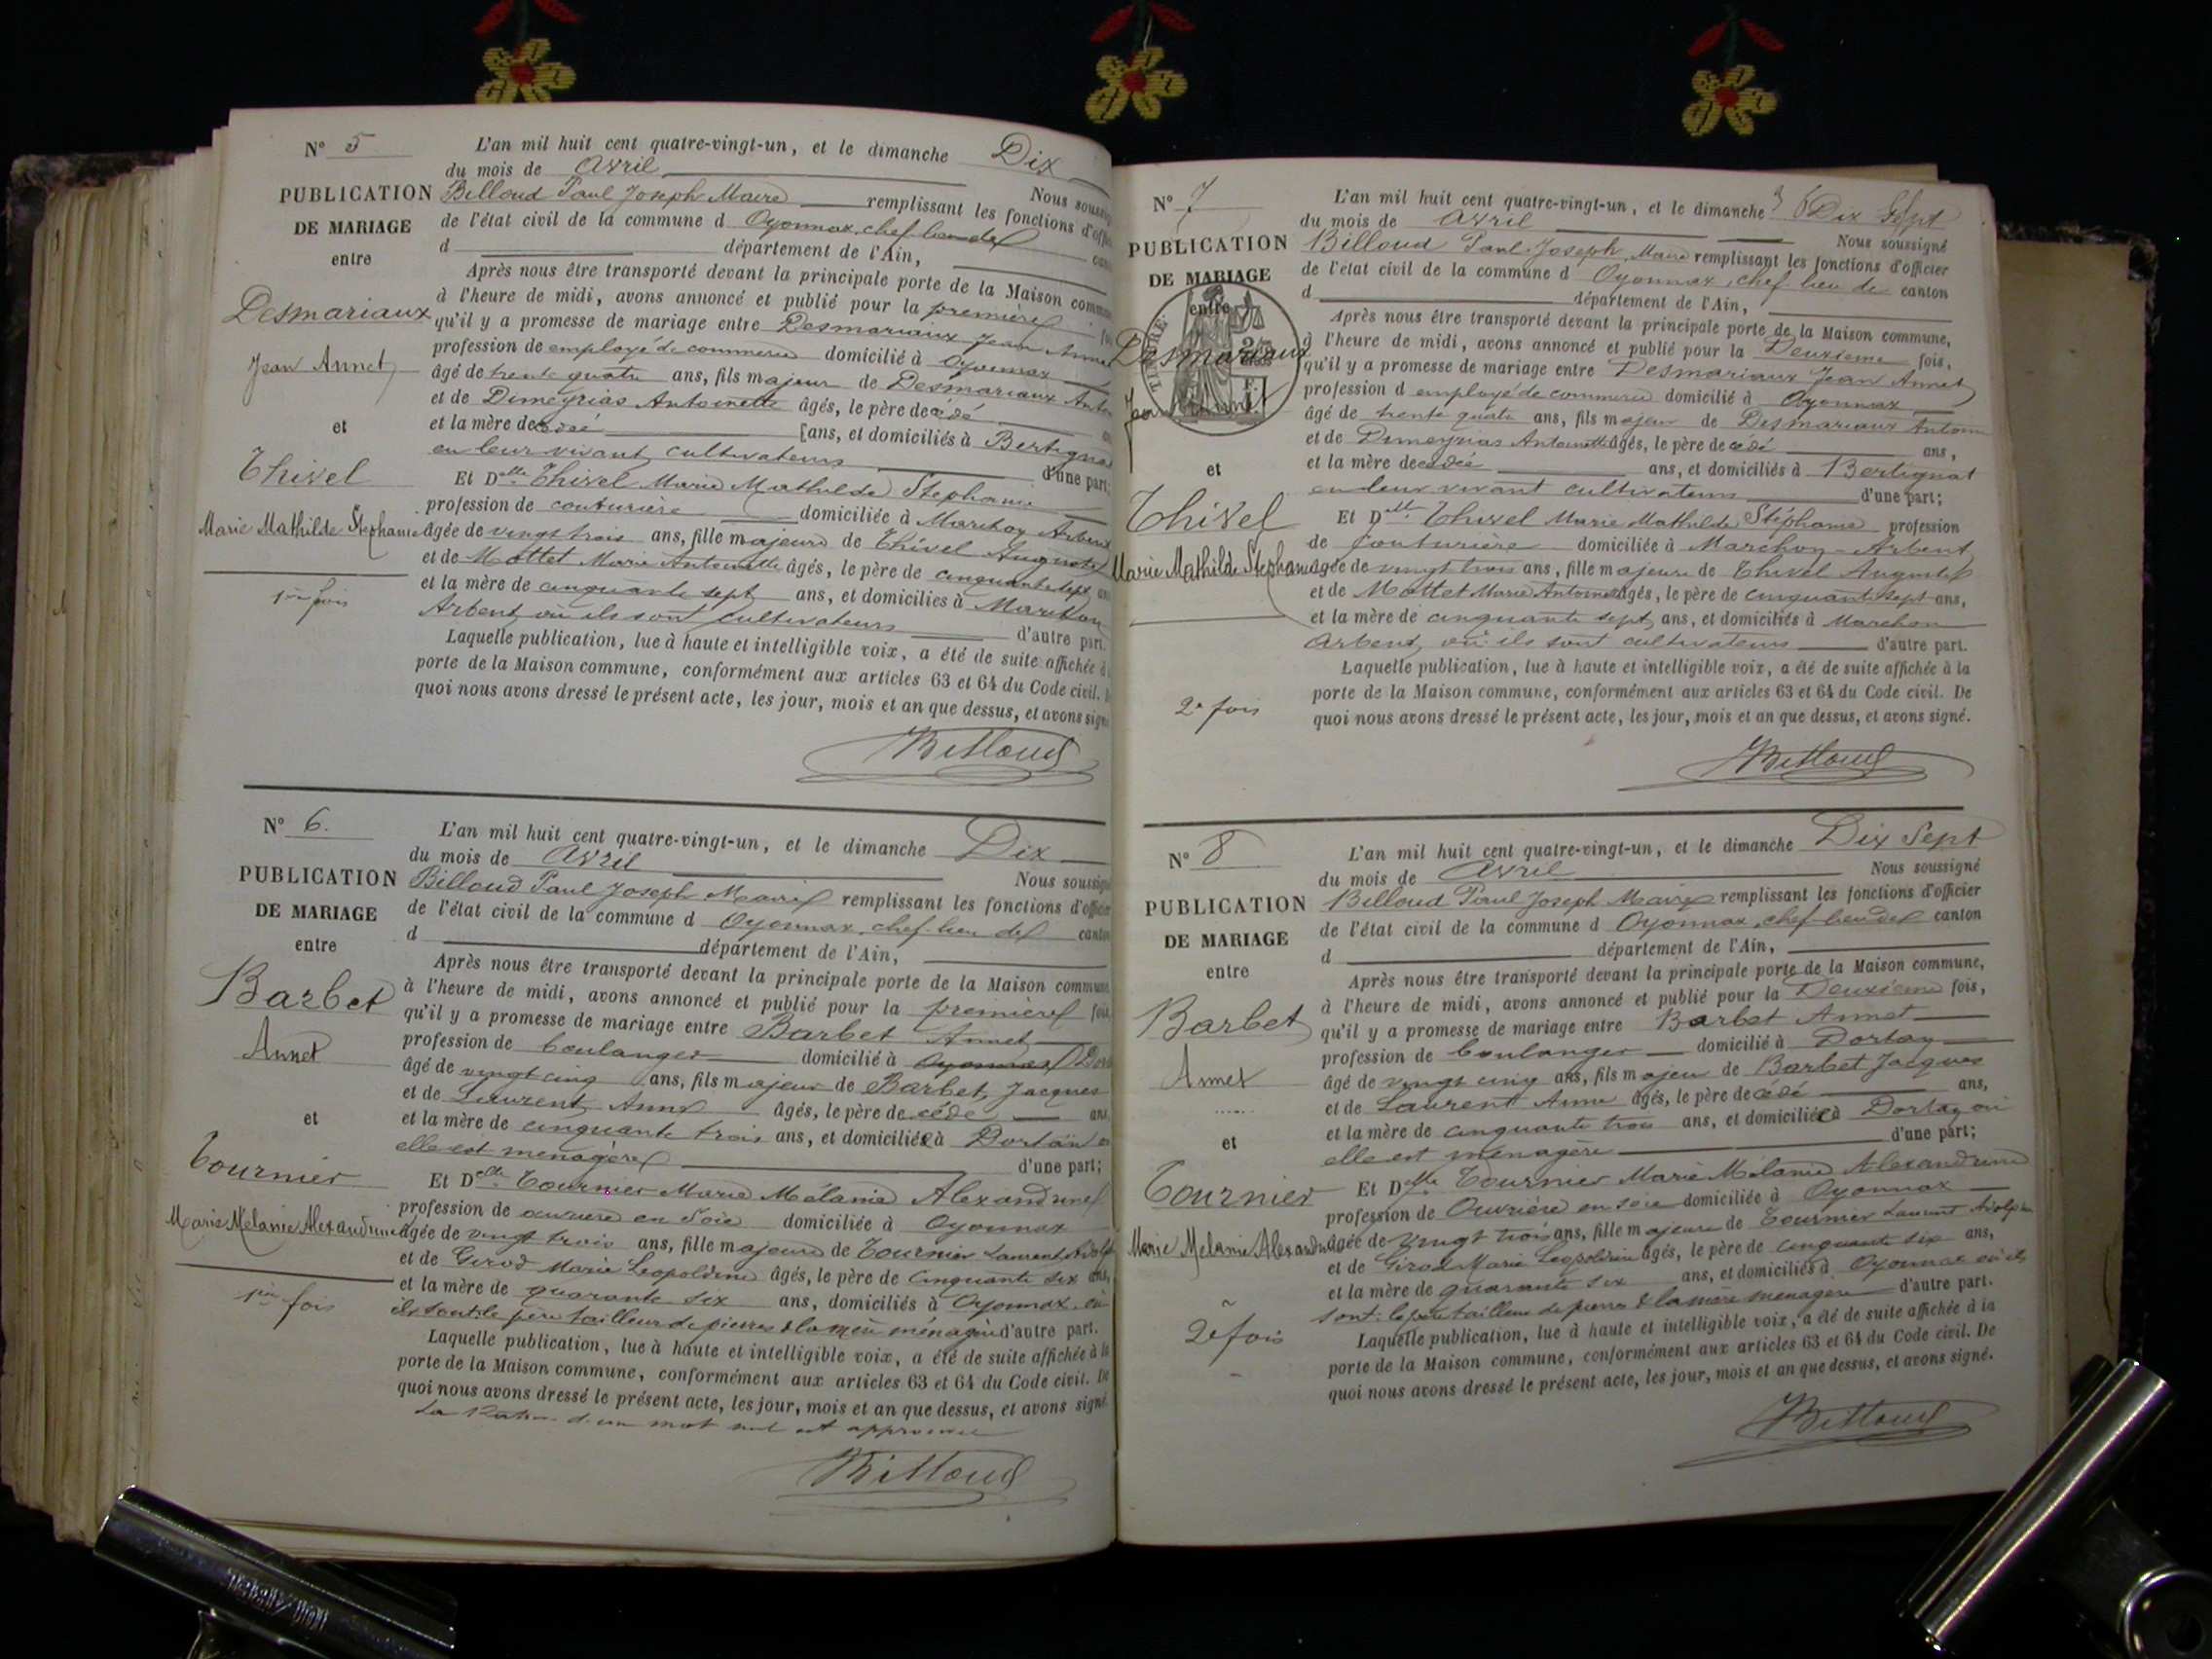 N° 5
PUBLICATION
DE MARIAGE
entre
Desmariaux
Jean Annet
et
Thivel
Marie Mathilde Stephanie
1ère fois
L'an mil huit cent quatre-vingt-un, et le dimanche Dix
du mois de Avril Nous
Billoud Paul Joseph Maire remplissant les fonctions
de l'état civil de la commune d Oyonnax, chef lieu de
d département de l'Ain,
Après nous être transporté devant la principale porte de la Maison
à l'heure de midi, avons annoncé et publié pour la première
qu'il y a promesse de mariage entre Desmariaux Jean Annet
profession de employé de commerce domicilié à Oyonnax
âgé de trente quatre ans, fils majeur de Desmariaux
et de Dimeyrias Antoinette âgés, le père décédé
et la mère décédée ans, et domiciliés à
en leur vivant cultivateurs d'une part;
Et Delle Thivel Marie Mathilde Stephanie
profession de couturière domiciliée à Marchon Arbent
âgée de vingt trois ans, fille majeure de Thivel Auguste
et de Mottet Marie Antoinette âgés, le père de cinquante sept
et la mère de cinquante sept ans, et domiciliés à Marchon
Arbent, où ils sont cultivateurs d'autre part.
Laquelle publication, lue à haute et intelligible voix, a été de suite affichée à
porte de la Maison commune, conformément aux articles 63 et 64 du Code civil.
quoi nous avons dressé le présent acte, les jour, mois et an que dessus, et avons
Billoud
N° 6.
PUBLICATION
DE MARIAGE
entre
Barbet
Annet
et
Tournier
Marie Mélanie Alexandrine
1ère fois
L'an mil huit cent quatre-vingt-un, et le dimanche Dix
du mois de Avril Nous
Billoud Paul Joseph Maire remplissant les fonctions
de l'état civil de la commune d Oyonnax, chef-lieu de canton
d département de l'Ain,
Après nous être transporté devant la principale porte de la Maison commune
à l'heure de midi, avons annoncé et publié pour la première fois,
qu'il y a promesse de mariage entre Barbet Annet
profession de boulanger domicilié à Oyonnax
âgé de vingt cinq ans, fils majeur de Barbet Jacques
et de Laurent Anne âgés, le père décédé ans,
et la mère de cinquante trois ans, et domiciliée à Dortan
elle est ménagère d'une part;
Et Delle Tournier Marie Mélanie Alexandrine
profession de ouvrière en soie domiciliée à Oyonnax
âgée de vingt trois ans, fille majeure de Tournier Laurent
et de Girod Marie Leopoldine âgés, le père de cinquante six ans,
et la mère de quarante six ans, domiciliés à Oyonnax où
ils sont: le père tailleur de pierres & la mère ménagère d'autre part.
Laquelle publication, lue à haute et intelligible voix, a été de suite affichée à la
porte de la Maison commune, conformément aux articles 63 et 64 du Code civil. De
quoi nous avons dressé le présent acte, les jour, mois et an que dessus, et avons signé.
La d'un mot nul est approuvée
Billoud
N° 7
PUBLICATION
DE MARIAGE
entre
TIMBRE
Desmariaux
Jean Annet
et
Thivel
Marie Mathilde Stephanie
2e fois
L'an mil huit cent quatre-vingt-un, et le dimanche Dix Sept
du mois de Avril Nous soussigné
Billoud Paul Joseph, Maire remplissant les fonctions d'officier
de l'état civil de la commune d Oyonnax, chef lieu de canton
d département de l'Ain,
Après nous être transporté devant la principale porte de la Maison commune,
à l'heure de midi, avons annoncé et publié pour la Deuxième fois,
qu'il y a promesse de mariage entre Desmariaux Jean Annet
profession d employé de commerce domicilié à Oyonnax
âgé de trente quatre ans, fils majeur de Desmariaux Antoine
et de Dimeyrias Antoinette âgés, le père décédé ans,
et la mère décédée ans, et domiciliés à Bertignat
en leur vivant cultivateurs d'une part;
Et Delle Thivel Marie Mathilde Stéphanie profession
de couturière domiciliée à Marchon-Arbent
âgée de vingt trois ans, fille majeure de Thivel Auguste
et de Mottet Marie Antoinette âgés, le père de cinquante sept ans,
et la mère de cinquante sept ans, et domiciliés à Marchon
Arbent, où ils sont cultivateurs d'autre part.
Laquelle publication, lue à haute et intelligible voix, a été de suite affichée à la
porte de la Maison commune, conformément aux articles 63 et 64 du Code civil. De
quoi nous avons dressé le présent acte, les jour, mois et an que dessus, et avons signé.
Billoud
N° 8
PUBLICATION
DE MARIAGE
entre
Barbet
Annet
et
Tournier
Marie Melanie Alexandrine
2e fois
L'an mil huit cent quatre-vingt-un, et le dimanche Dix Sept
du mois de Avril Nous soussigné
Billoud Paul Joseph Maire remplissant les fonctions d'officier
de l'état civil de la commune d Oyonnax, chef-lieu de canton
d département de l'Ain,
Après nous être transporté devant la principale porte de la Maison commune,
à l'heure de midi, avons annoncé et publié pour la Deuxième fois,
qu'il y a promesse de mariage entre Barbet Annet
profession de boulanger domicilié à Dortan
âgé de vingt cinq ans, fils majeur de Barbet Jacques
et de Laurent Anne âgés, le père décédé ans,
et la mère de cinquante trois ans, et domiciliée à Dortan où
elle est ménagère d'une part;
Et Delle Tournier Marie Mélanie Alexandrine
profession de Ouvrière en soie domiciliée à Oyonnax
âgée de vingt trois ans, fille majeure de Tournier Laurent Adolphe
et de Girod Marie Leopoldine âgés, le père de cinquante six ans,
et la mère de quarante six ans, et domiciliés à Oyonnax où ils
sont: le père tailleur de pierres & la mère ménagère d'autre part.
Laquelle publication, lue à haute et intelligible voix, a été de suite affichée à la
porte de la Maison commune, conformément aux articles 63 et 64 du Code civil. De
quoi nous avons dressé le présent acte, les jour, mois et an que dessus, et avons signé.
Billoud